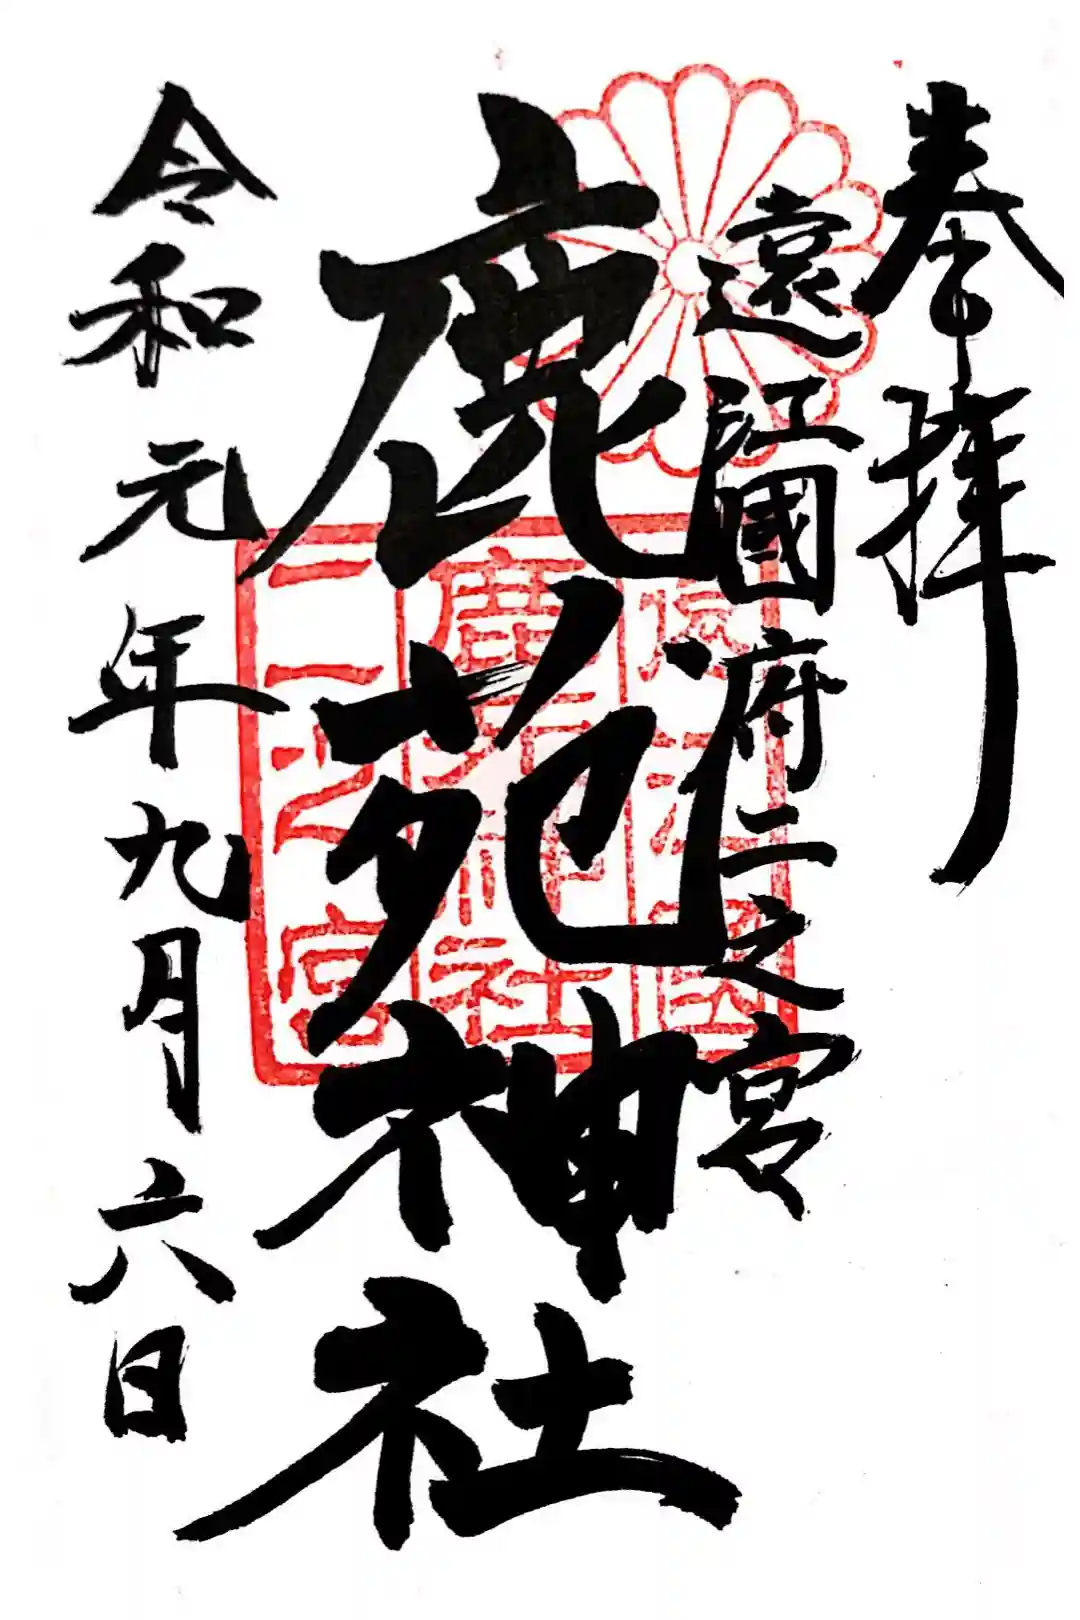 奉拝
遠江國府二之宮
鹿苑神社
令和元年九月六日
遠江国
鹿苑神社
二之宮